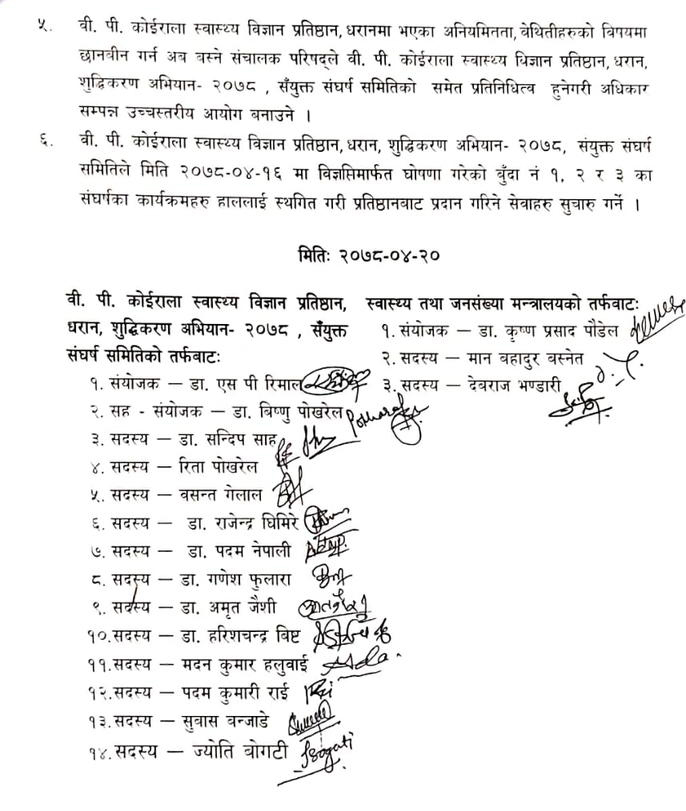 ५. वी. पी. कोईराला स्वास्थ्य विज्ञान प्रतिष्ठान, धरानमा भएका अनियमितता, वेथितीहरुको विषयमा
छानवीन गर्न अब बस्ने संचालक परिषद्ले वी. पी. कोईराला स्वास्थ्य विज्ञान प्रतिष्ठान, धरान,
शुद्धिकरण अभियान- २०७८ , सँयुक्त संघर्ष समितिको समेत प्रतिनिधित्व हुनेगरी अधिकार
सम्पन्न उच्चस्तरीय आयोग बनाउने ।
६. वी. पी. कोईराला स्वास्थ्य विज्ञान प्रतिष्ठान, धरान, शुद्धिकरण अभियान- २०७८, संयुक्त संघर्ष
समितिले मिति २०७८-०४-१६ मा विज्ञप्तिमार्फत घोषणा गरेको बुँदा नं १, २ र ३ का
संघर्षका कार्यक्रमहरु हाललाई स्थगित गरी प्रतिष्ठानबाट प्रदान गरिने सेवाहरु सुचारु गर्ने ।
मितिः २०७८-०४-२०
वी. पी. कोईराला स्वास्थ्य विज्ञान प्रतिष्ठान,
धरान, शुद्धिकरण अभियान- २०७८ , सँयुक्त
संघर्ष समितिको तर्फवाटः
१. संयोजक – डा. एस पी रिमाल
२. सह - संयोजक – डा. विष्णु पोखरेल
३. सदस्य – डा. सन्दिप साह
४. सदस्य – रिता पोखरेल
५. सदस्य – वसन्त गेलाल
६. सदस्य – डा. राजेन्द्र घिमिरे
७. सदस्य – डा. पदम नेपाली
८. सदस्य – डा. गणेश फुलारा
९. सदस्य – डा. अमृत जैशी
१०.सदस्य – डा. हरिशचन्द्र विष्ट
११.सदस्य – मदन कुमार हलुवाई
१२.सदस्य – पदम कुमारी राई
१३.सदस्य – सुवास वन्जाडे
१४.सदस्य – ज्योति वोगटी
स्वास्थ्य तथा जनसंख्या मन्त्रालयको तर्फवाटः
१. संयोजक – डा. कृष्ण प्रसाद पौडेल
२. सदस्य – मान वहादुर वस्नेत
३. सदस्य – देवराज भण्डारी